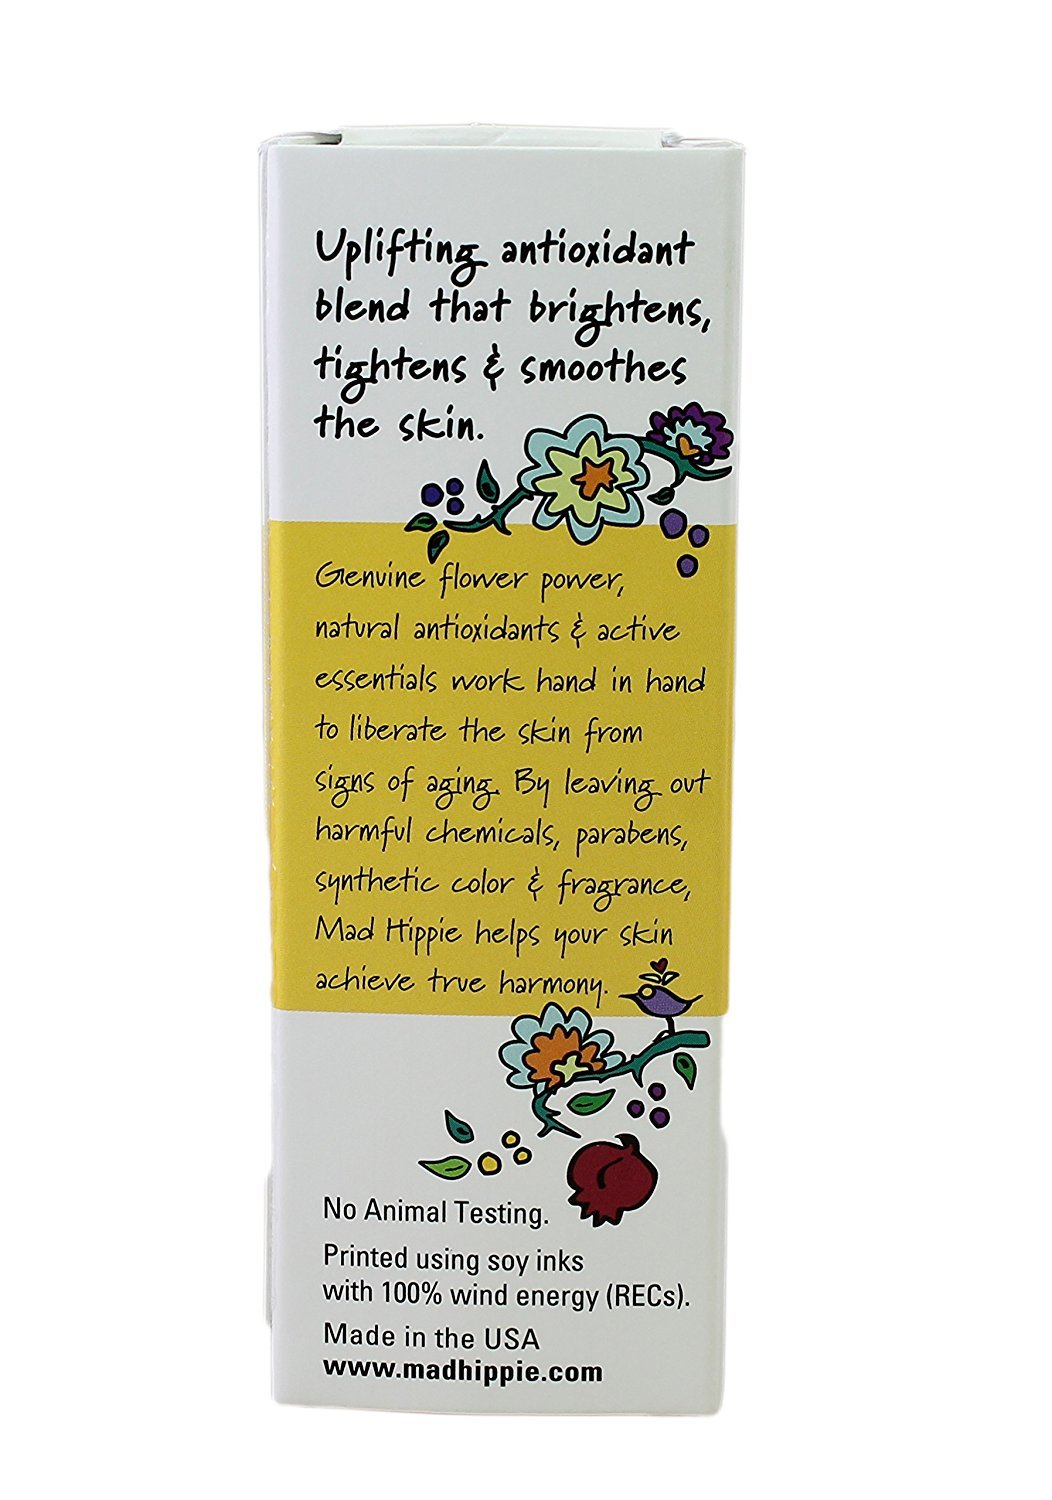 Uplifting antioxidant
blend that brightens,
tightens & smoothes
the skin.
Genuine flower power,
natural antioxidants & active
essentials work hand in hand
to liberate the skin from
signs of aging. By leaving out
harmful chemicals, parabens,
synthetic color & fragrance,
Mad Hippie helps your skin
achieve true harmony.
No Animal Testing.
Printed using soy inks
with 100% wind energy (RECs).
Made in the USA
www.madhippie.com